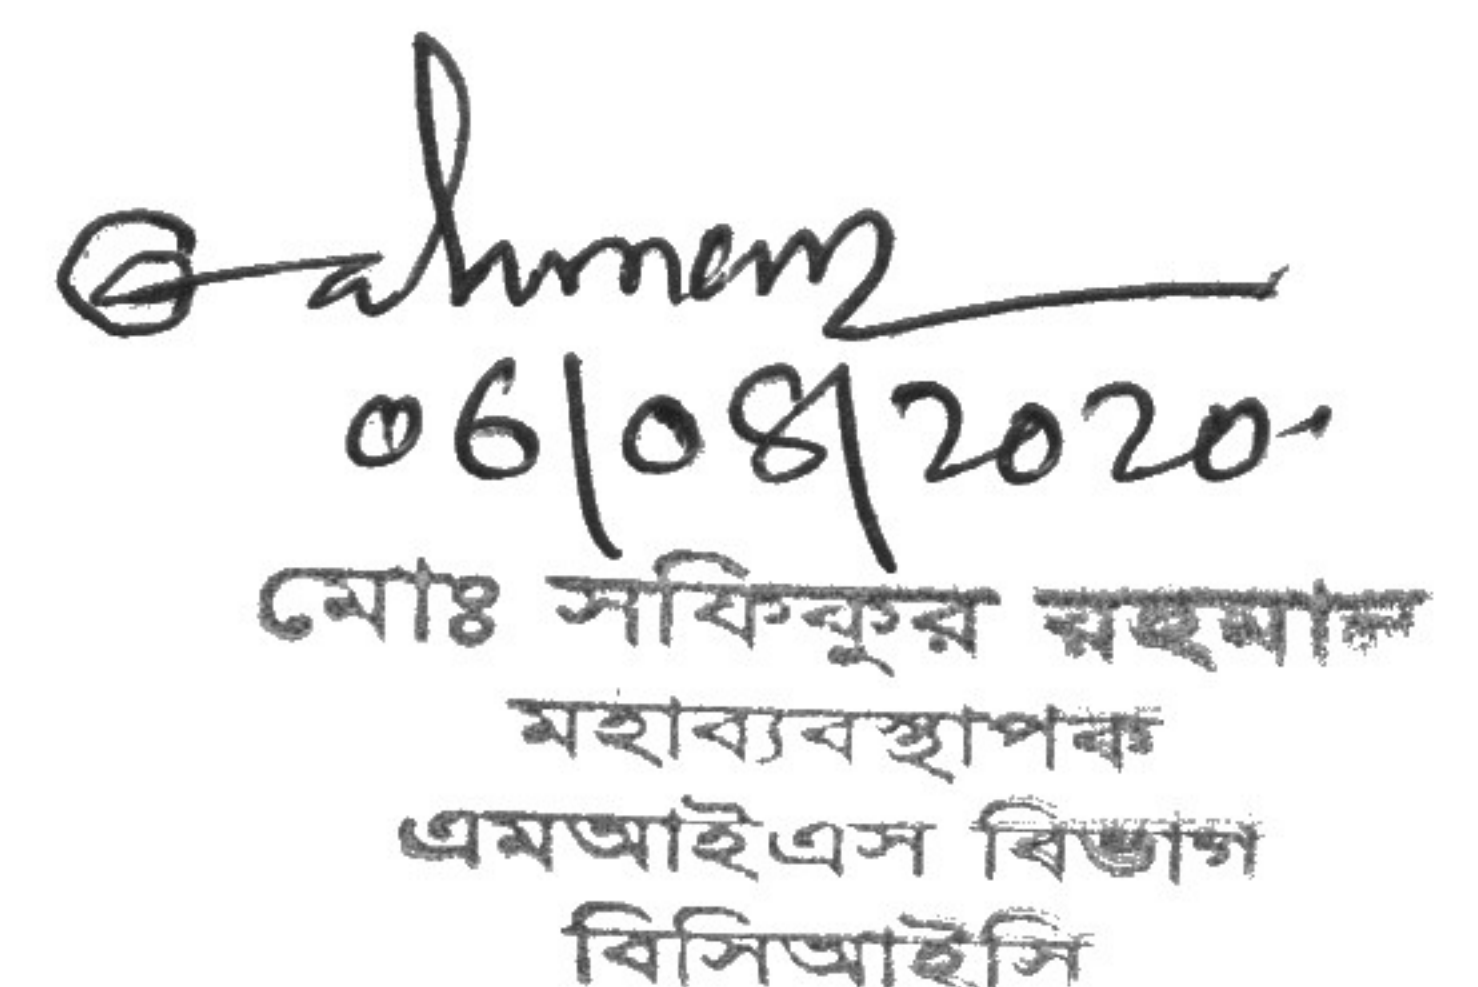 Rahman
06/08/2020.
মোঃ সফিকুর রহমান
মহাব্যবস্থাপক
এমআইএস বিভাগ
বিসিআইসি